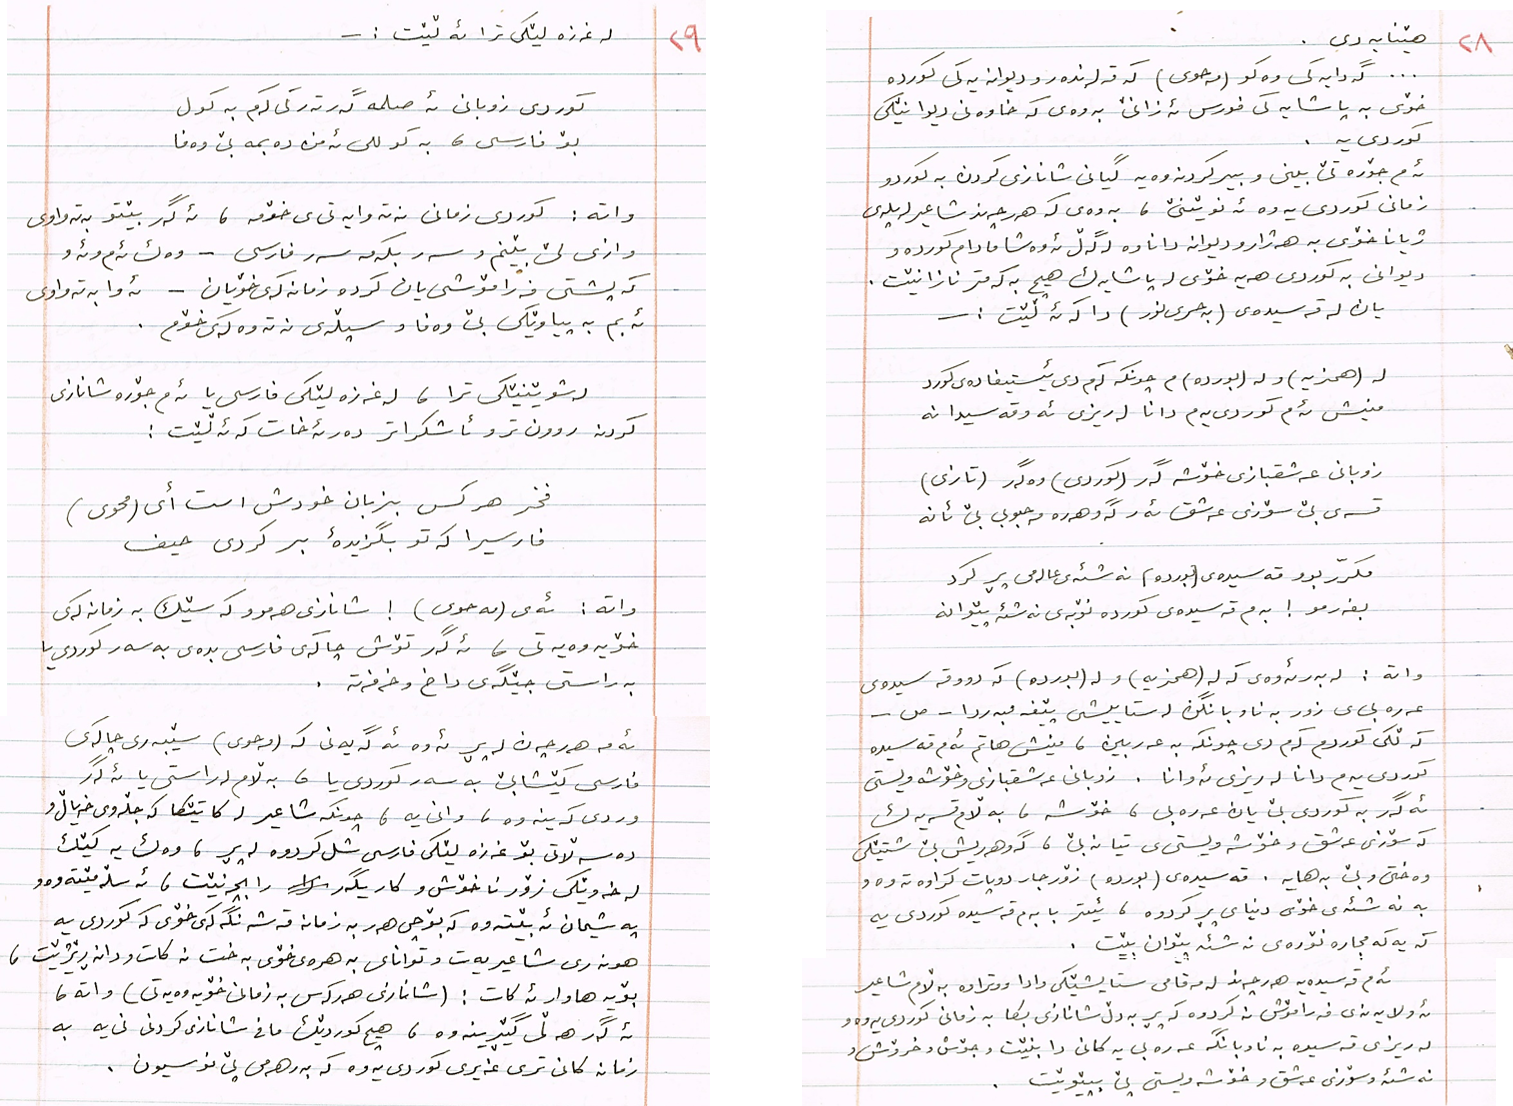 ٢٨
هێنابەدی .
... گەدایەکی وەکو (مەحوی) کە قەلەندەر و دیوانەیەکی کوردە
خۆی بە پاشایەکی فورس ئەزانێ بەوەی کە خاوەنی دیوانێکی
کوردی یە .
ئەم جۆرە تێ بینی و بیرکردنەوەیە گیانی شانازی کردن بە کورد و
زمانی کوردی یەوە ئەنوێنێ ، بەوەی کە هەرچەند شاعیر لە پلەی
ژیانا خۆی بە هەژار و دیوانە داناوە لەگەڵ ئەوەشا مادام کوردە و
دیوانی بە کوردی هەیە خۆی لە پاشایەک هیچ بە کەمتر نازانێت .
یان لە قەسیدەی (بەحری نور) دا کە ئەڵێت : —
لە (همزیە) و لە (بوردە) م چونکە کەم دی ئیستیفادەی کورد
منیش ئەم کوردی یەم دانا لە ریزی ئەو قەسیدانە
زوبانی عەشقبازی خۆشە گەر (کوردی) وەگەر (تازی)
قسەی بێ سۆزی عەشق ئەر گەوهەرە مەحبوبی بێ ئانە
مکرّر بوو قەسیدەی (بوردە) نەشئەی عالەمی پڕ کرد
بفەرموو ! بەم قەسیدەی کوردە نۆبەی نەشئە پێوانە
واتە : لەبەر ئەوەی کە لە (همزیە) و لە (بوردە) کە دوو قەسیدەی
عەرەبی ی زۆر بە ناوبانگن لە ستاییشی پێغەمبەردا - ص -
کەڵکی کوردم کەم دی چونکە بە عەربین ، منیش هاتم ئەم قەسیدە
کوردی یەم دانا لە ریزی ئەوانا . زوبانی عەشقبازی و خۆشەویستی
ئەگەر بە کوردی بێ یان عەرەبی ، خۆشە ، بەڵام قسەیەک
کە سۆزی عەشق و خۆشەویستی ی تیا نەبێ ، گەوهەریش بێ شتێکی
وەختی و بێ بەهایە . قەسیدەی (بوردە) زۆر جار دوپات کراوەتەوە و
بە نەشئەی خۆی دنیای پڕ کردوە ، ئیتر با بەم قەسیدە کوردی یە
کە یەکەمجارە نۆرەی نەشئە پێوان بێت .
ئەم قەسیدەیە هەرچەند لە مەقامی ستایشێکی وادا ووتراوە بەڵام شاعیر
ئەو لایەنەی فەرامۆش نەکردوە کە پڕ بە دڵ شانازی بکا بە زمانی کوردی یەوە و
لە ریزی قەسیدە بە ناوبانگە عەرەبی یەکانی دا بنێت و جۆش و خرۆش و
نەشئە و سۆزی عەشق و خۆشەویستی پێ بپێوێت .
٢٩
لە غەزەلێکی ترا ئەڵێت : —
کوردی زوبانی ئەصلمە گەر تەرکی کەم بە کول
بۆ فارسی ، بە کوللی ئەمن دەبمە بێ وەفا
واتە : کوردی زمانی نەتەوایەتی ی خۆمە ، ئەگەر بێتو بە تەواوی
وازی لێ بێنم و سەر بکەمە سەر فارسی - وەک ئەم و ئەو
کە پشتی فەرامۆشی یان کردە زمانەکەی خۆیان - ئەوا بە تەواوی
ئەبم بە پیاوێکی بێ وەفا و سپڵەی نەتەوەکەی خۆم .
لە شوێنێکی ترا ، لە غەزەلێکی فارسی یا ئەم جۆرە شانازی
کردنە روونتر و ئاشکراتر دەر ئەخات کە ئەڵێت :
فخر هر کس بزبان خودش است أی (محوی)
فارسیرا که تو بگزیدهٔ بر کردی حیف
واتە : ئەی (مەحوی) ! شانازی هەموو کەسێک بە زمانەکەی
خۆیەوەیەتی ، ئەگەر تۆش چاکەی فارسی بدەی بەسەر کوردی یا
بەراستی جێگەی داخ و خەفەتە .
ئەمە هەرچەن لە پڕ ئەوە ئەگەیەنی کە (مەحوی) سێبەری چاکەی
فارسی کێشابێ بەسەر کوردی یا ، بەڵام لە راستی یا ئەگەر
وردی کەینەوە ، وانی یە ، چونکە شاعیر لە کاتێکا کە جڵەوی خەیاڵ و
دەسەڵاتی بۆ غەزەلێکی فارسی شل کردوە لە پڕ ، وەک یەکێک
لە خەوێکی زۆر ناخۆش و کاریگەر راپچەنێت ، ئەسڵەمێتەوە و
پەشیمان ئەبێتەوە کە بۆچی هەر بە زمانە قەشەنگەکەی خۆی کە کوردی یە
هونەری شاعیریەت و توانای بەهرەی خۆی بەخت نەکات و دانەڕێژێت ،
بۆیە هاوار ئەکات : (شانازی هەرکەس بە زمانی خۆیەوەیەتی) واتە ،
ئەگەر هەڵی گێڕینەوە ، هیچ کوردێک مافی شانازی کردنی نی یە بە
زمانەکانی تری غەیری کوردی یەوە کە بەرهەمی پێ نوسیون .